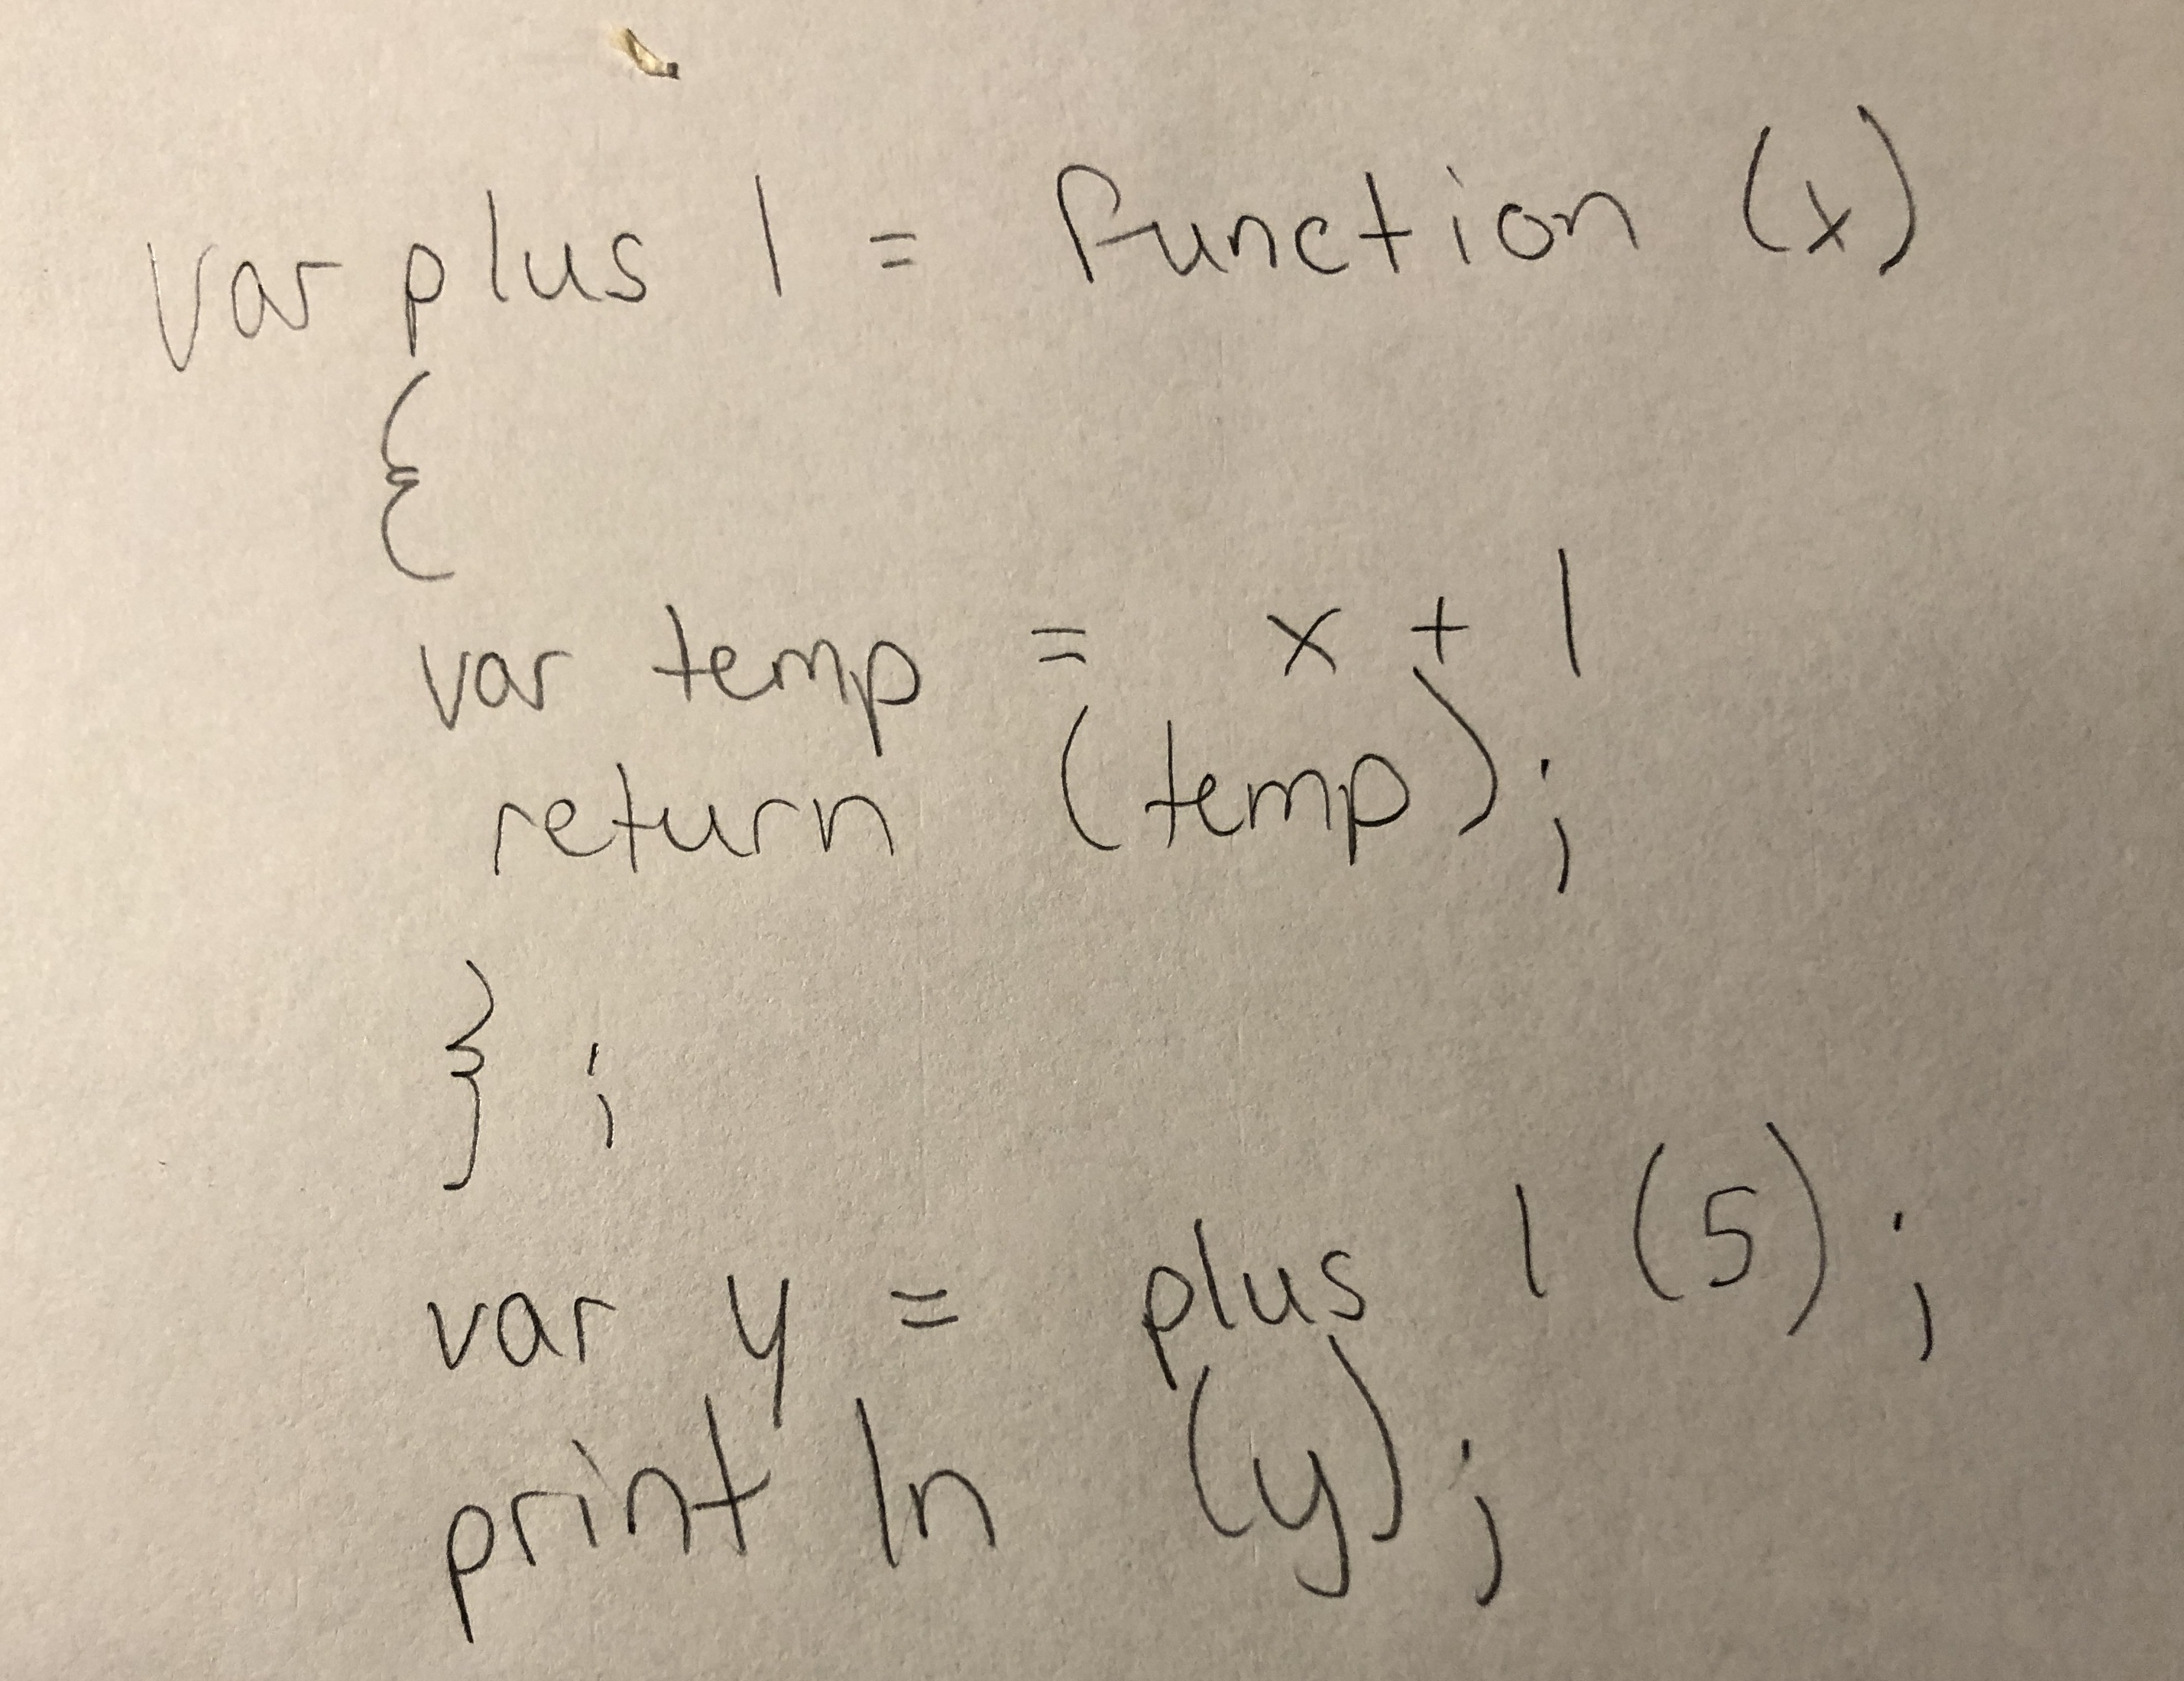 var plus 1 = function (x)
{
var temp = x + 1
return (temp);
};
var y = plus 1 (5);
print ln (y);